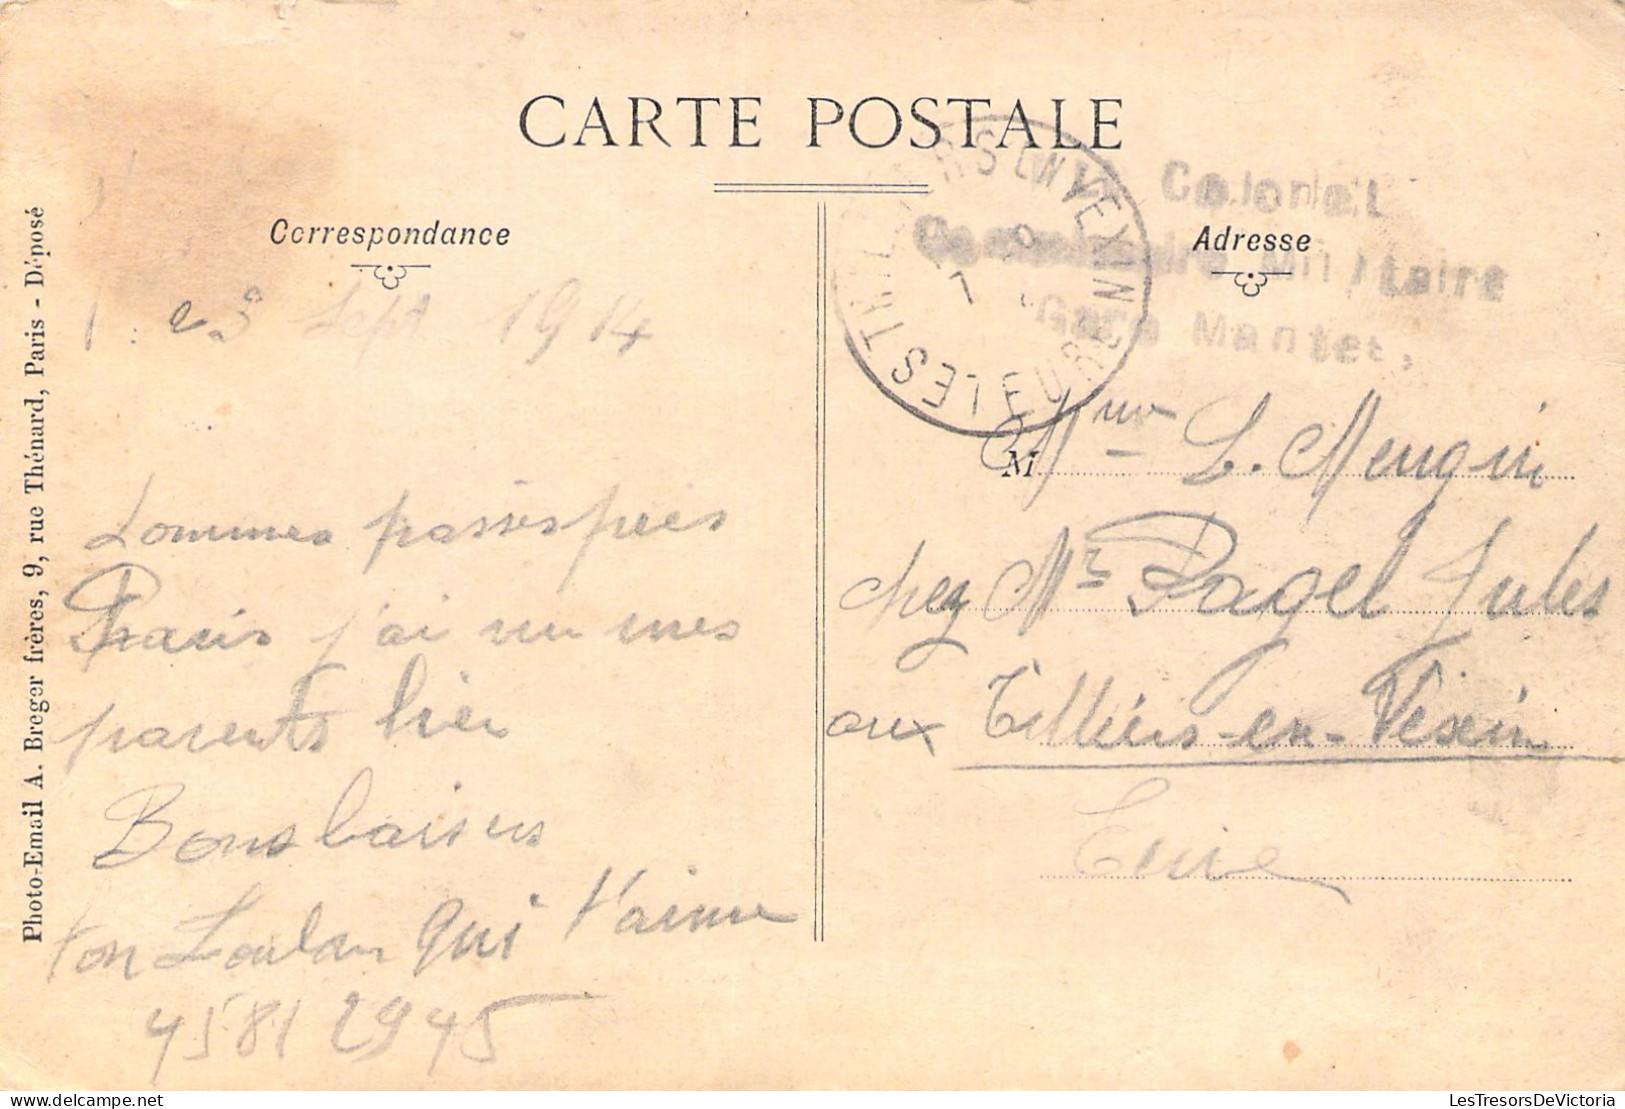 CARTE POSTALE
Correspondance
Adresse
Photo-Email A. Breger frères, 9, rue Thénard, Paris - Déposé
Colonel
Militaire
Gare Mantes,
Sept 1914
Mme L. Mengin
chez Mr Pagel Jules
aux Tilliers-en-Vexin
Eure
Sommes passés près
Paris j'ai vu mes
parents hier
Bons baisers
ton Loulou qui t'aime
4581 2945
TILLIERS EN VEXIN
EURE
LesTresorsDeVictoria
www.delcampe.net/fr